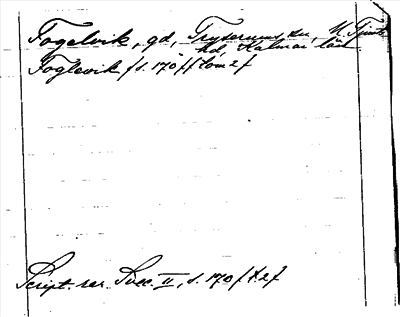 Fogelvik, gd, Tryserums sn, N. Tjust
hd, Kalmar län
Foglevik f s. 170 ff tom 2 f
Script. rer. Svec. II, s. 170 f t. 2 f